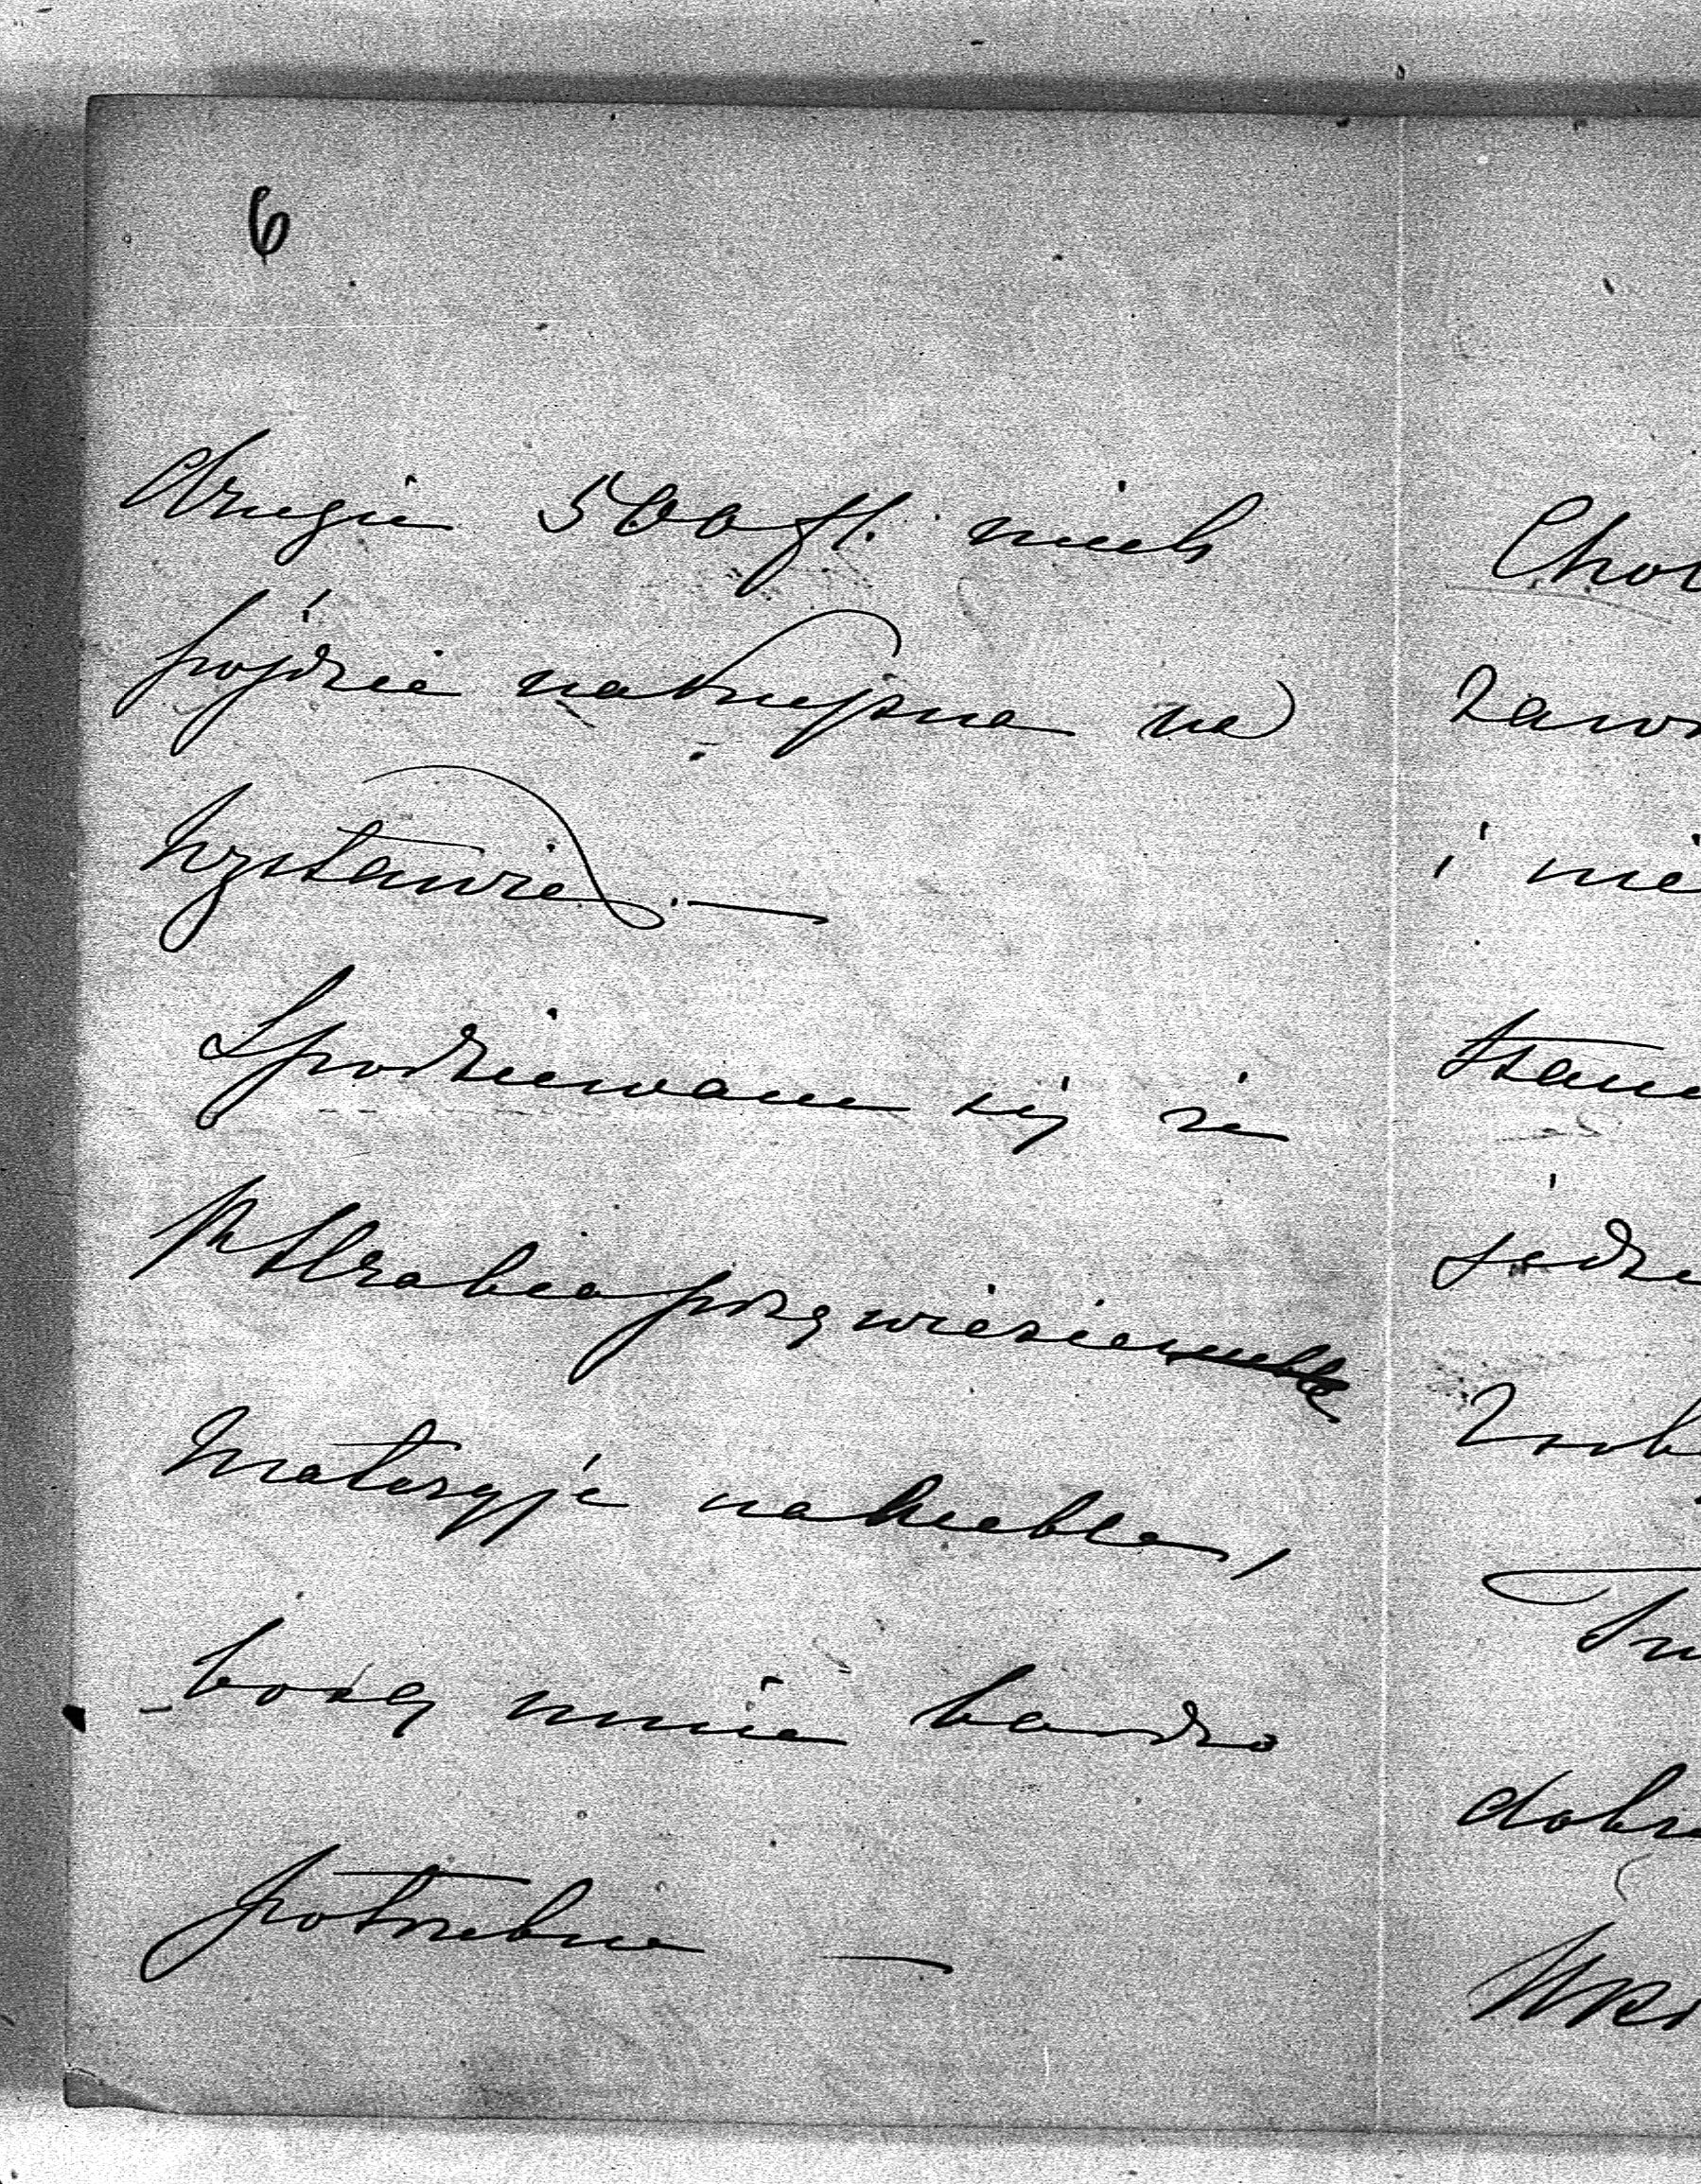 6
Drugie 500 fl. niech
pójdzie na
wystawie. —
Spodziewam się że
Hrabia przywiezie
Materyje na meble,
bo są mnie bardzo
potrzebne —
Chor
zaws
i nie
stan
jedze
dobr